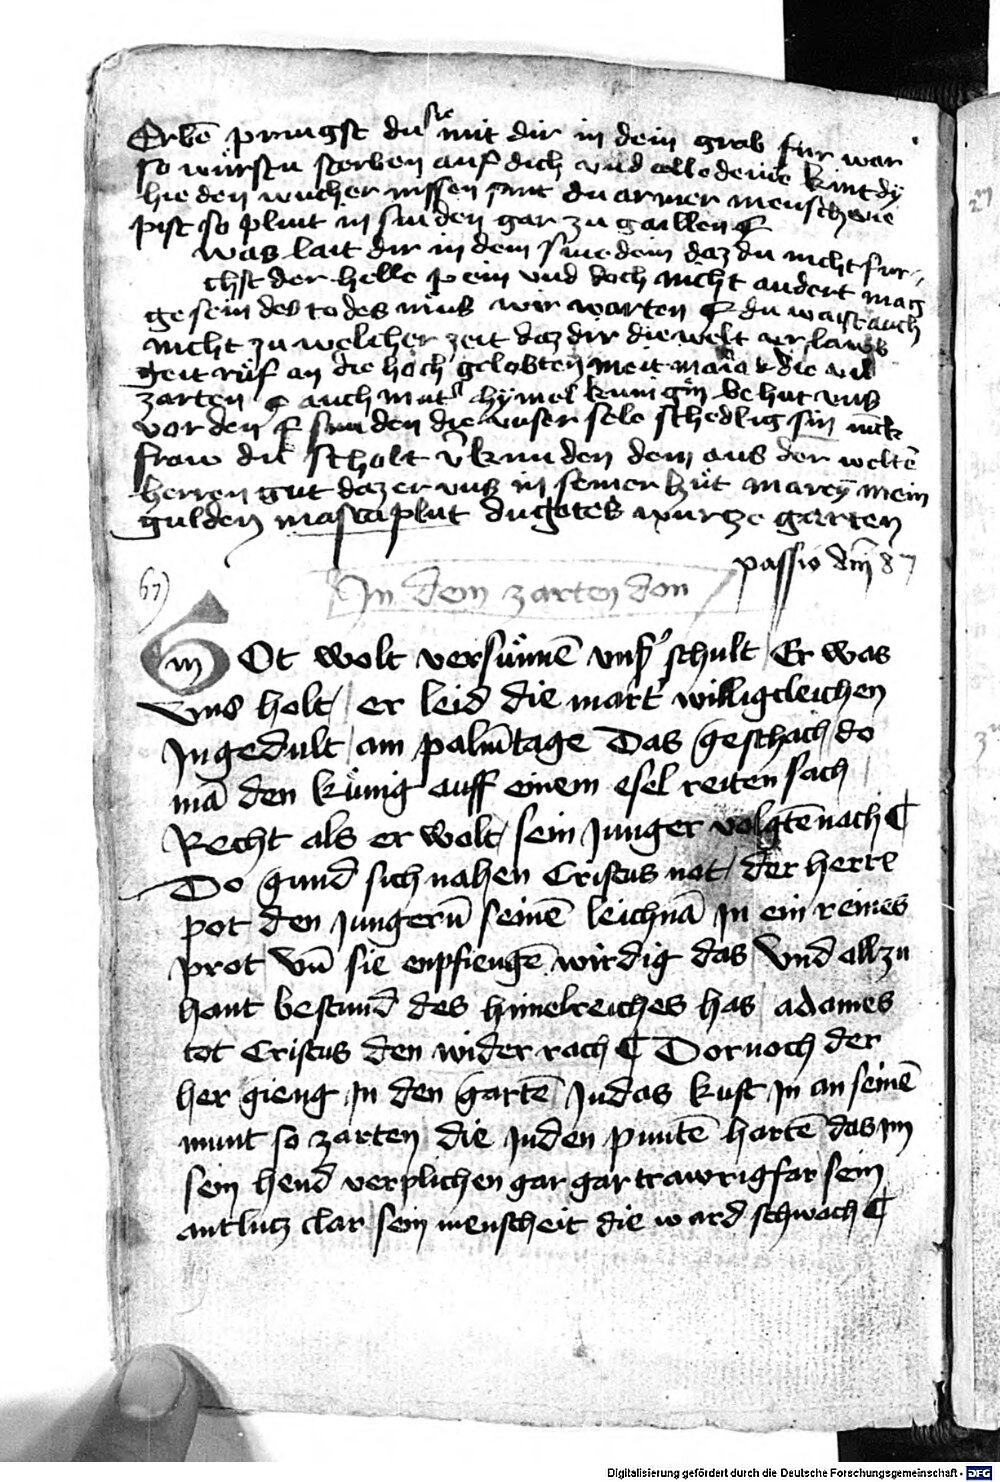 Erbē pringst du sie mit dir in dein grab fur war
so würstu sterben auf dich vnd alle deine kint dy
hie den wucher wissen sint du armer mensch wie
pist so plint in sunden gar zu gaillen
was lait dir in dem sine dein daz du nicht fur-
chst der helle pein vnd doch nicht andert mag
gesein des todes müs wir warten du waist auch
nicht zu welcher zeit daz dir die welt vrlaub
geit rüf an die hoch gelobten meit maria die vil
zarten auch mut hymel kunigin behut vns
vor den sunden die vnser sele schedlig sin
fraw du scholt kunden dem aus der welte
herren gut daz er vns in seiner hüt mein
gulden plut du gotes wurze garten
passio dm̄ 87
67) In dem zarten don
m Ot wolt versünnē vnsˀ schult Er was
Vns holt / er leid die mart williglcleichen
In gedult / am palm̄tage Das geschach do
mā den künig auff einem esel reiten sach
Recht als er wolt / sein Junger volgtē nach ¶
Do gund sich nahen Cristus not / der herre
pot den Jungern̄ seinē leichnā In ein reines
prot Vn̄ sie enpfiengē wirdig das Vnd all zu
hant bestund des himelreiches has / adames
tot Cristus den wider rach ¶ Dornoch der
her gieng In den gartē Judas kust In an seinē
munt so zarten die Juden puntē hartē das im
sein hend verplichen gar gar trawrigfar sein
antlutz clar / sein menscheit die ward schwach ¶
Digitalisierung gefördert durch die Deutsche Forschungsgemeinschaft - DFG